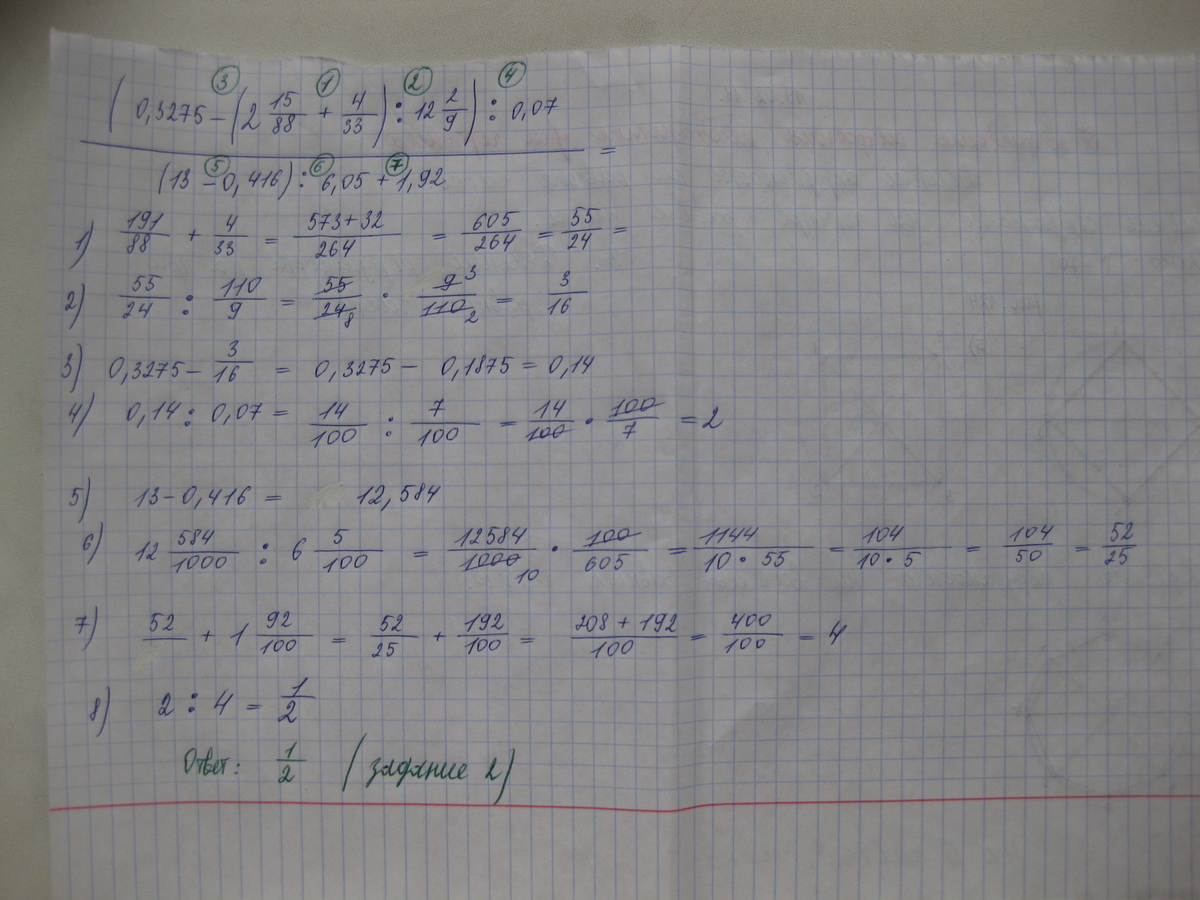 ③ ① ② ④
(0,3275 - (2 15/88 + 4/33) : 12 2/9) : 0,07
=
⑤ ⑥ ⑦
(13 - 0,416) : 6,05 + 1,92
1) 191/88 + 4/33 = 573+32/264 = 605/264 = 55/24 =
2) 55/24 : 110/9 = 55/24 8 · 9 3/110 2 = 3/16
3) 0,3275 - 3/16 = 0,3275 - 0,1875 = 0,14
4) 0,14 : 0,07 = 14/100 : 7/100 = 14/100 · 100/7 = 2
5) 13 - 0,416 = 12,584
6) 12 584/1000 : 6 5/100 = 12584/1000 10 · 100/605 = 1144/10·55 = 104/10·5 = 104/50 = 52/25
7) 52/ + 1 92/100 = 52/25 + 192/100 = 208+192/100 = 400/100 = 4
8) 2 : 4 = 1/2
Ответ: 1/2 (задание 2)